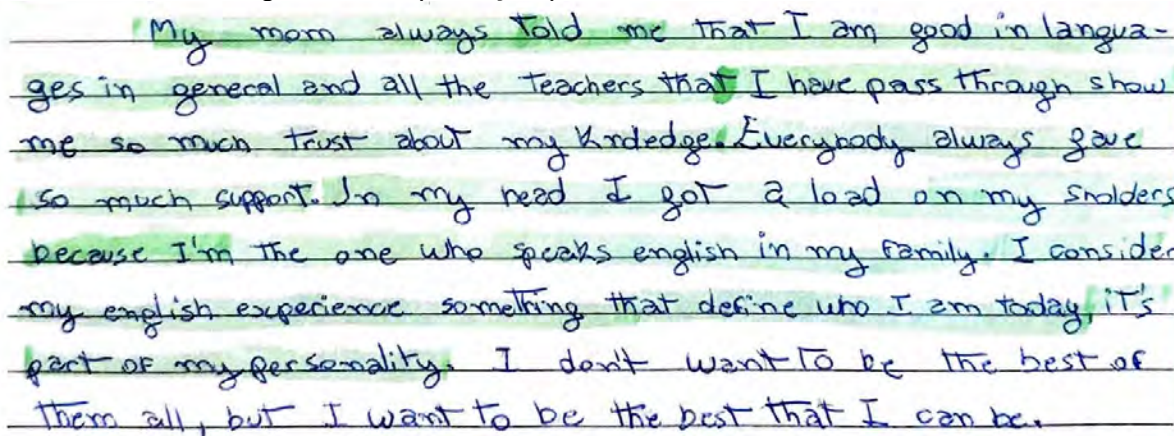 My mom always told me that I am good in langua-
ges in general and all the teachers that I have pass through show
me so much trust about my kndedge. Everybody always gave
so much support. In my head I got a load on my sholders
because I'm the one who speaks english in my family. I consider
my english experience something that define who I am today, it's
part of my personality. I don't want to be the best of
them all, but I want to be the best that I can be.